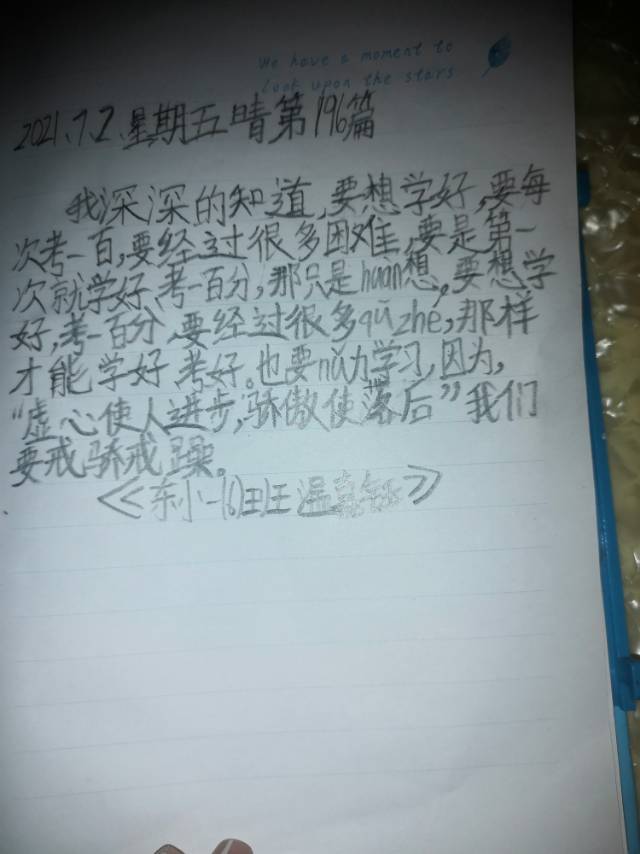 We have a moment to
look upon the stars
2021.7.2.星期五晴第196篇
我深深的知道,要想学好,要每
次考一百,要经过很多困难,要是第一
次就学好、考一百分,那只是huàn想。要想学
好,考一百分、要经过很多qǔzhé,那样
才能学好、考好。也要nǔ力学习,因为,
“虚心使人进步,骄傲使落后”我们
要戒骄戒躁。
《东小一(6)班王温